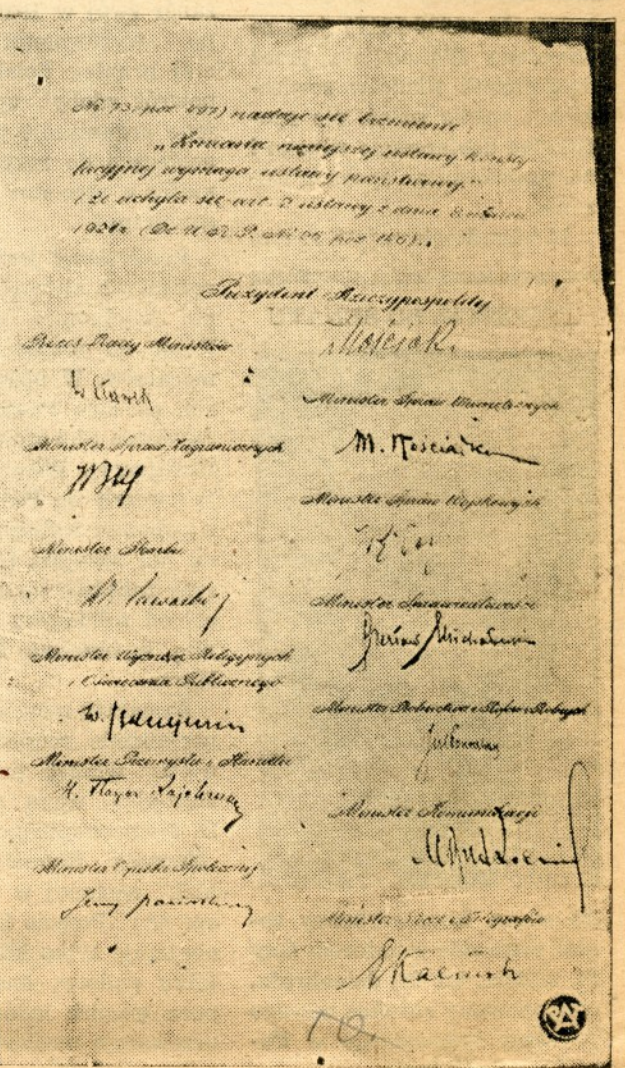 Nr 73 poz 497) nadaje się brzmienie
„Zmiana niniejszej ustawy konsty
tucyjnej wymaga ustawy państwowej."
uchyla się art. 2 ustawy z dnia
(Dz U R. P. Nr
Prezydent Rzeczypospolitej
Mościcki
Prezes Rady Ministrów
W Sławek
Minister Spraw Wewnętrznych
M. Kościałkow
Minister Spraw Zagranicznych
Beck
Minister Spraw Wojskowych
Minister Skarbu
Wł. Zawadzki
Minister Sprawiedliwości
Czesław Michałowski
Minister Wyznań Religijnych
i Oświecenia Publicznego
W. Jędrzejewicz
Minister Rolnictwa i Reform Rolnych
J Poniatowski
Minister Przemysłu i Handlu
H. Floyar Rajchman
Minister Komunikacji
M Butkiewicz
Minister Opieki Społecznej
Jerzy Paciorkowski
Minister Poczt i Telegrafów
E Kaliński
10.
PAT